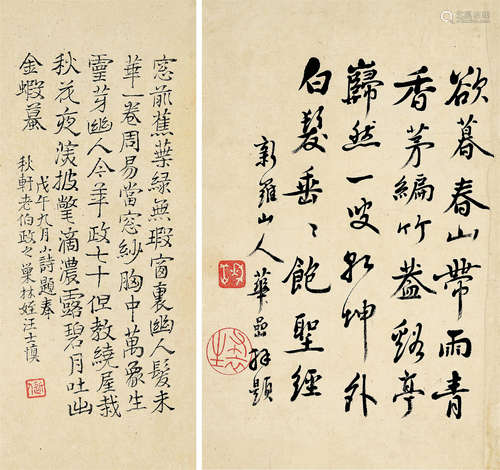 欲暮春山帶雨青
香茅編竹蓋谿亭
巋然一叟乾坤外
白髮垂〻飽聖經
新羅山人華嵒拜題
窓前蕉葉綠無瑕窗裏幽人髮未
華一卷周易當窓紗胸中萬象生
靈芽幽人今年政七十但教繞屋栽
秋花夜深披氅滴濃露碧月吐出
金蝦蟇
戊午九月小詩題奉
秋軒老伯政之巢林姪汪士慎